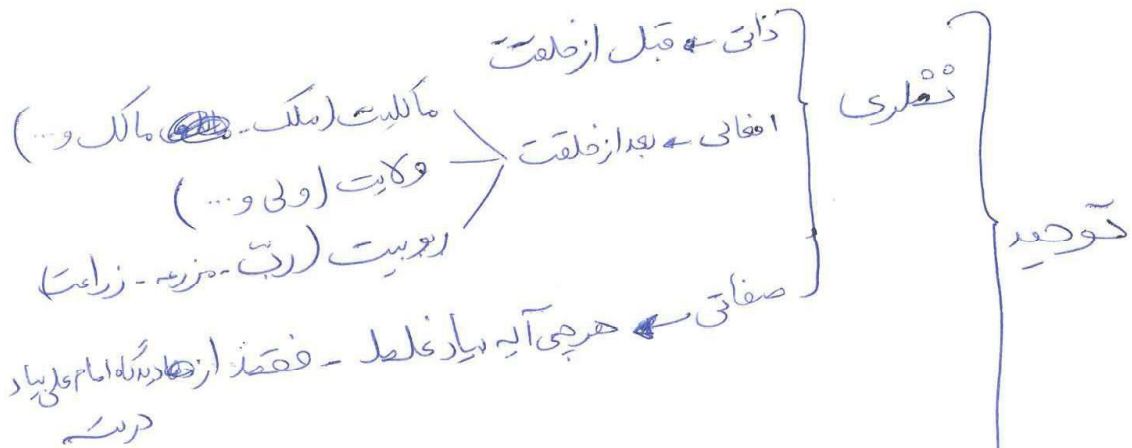 توحید
نظری
ذاتی ← قبل از خلقت
افعالی ← بعد از خلقت
مالکیت (ملک - مالک و ...)
ولایت (ولی و ...)
ربوبیت (ربّ - مزرعه - زراعت)
صفاتی ← هرچی آیه بیاد غلط - فقط از دیدگاه امام علی بیاد
درسته